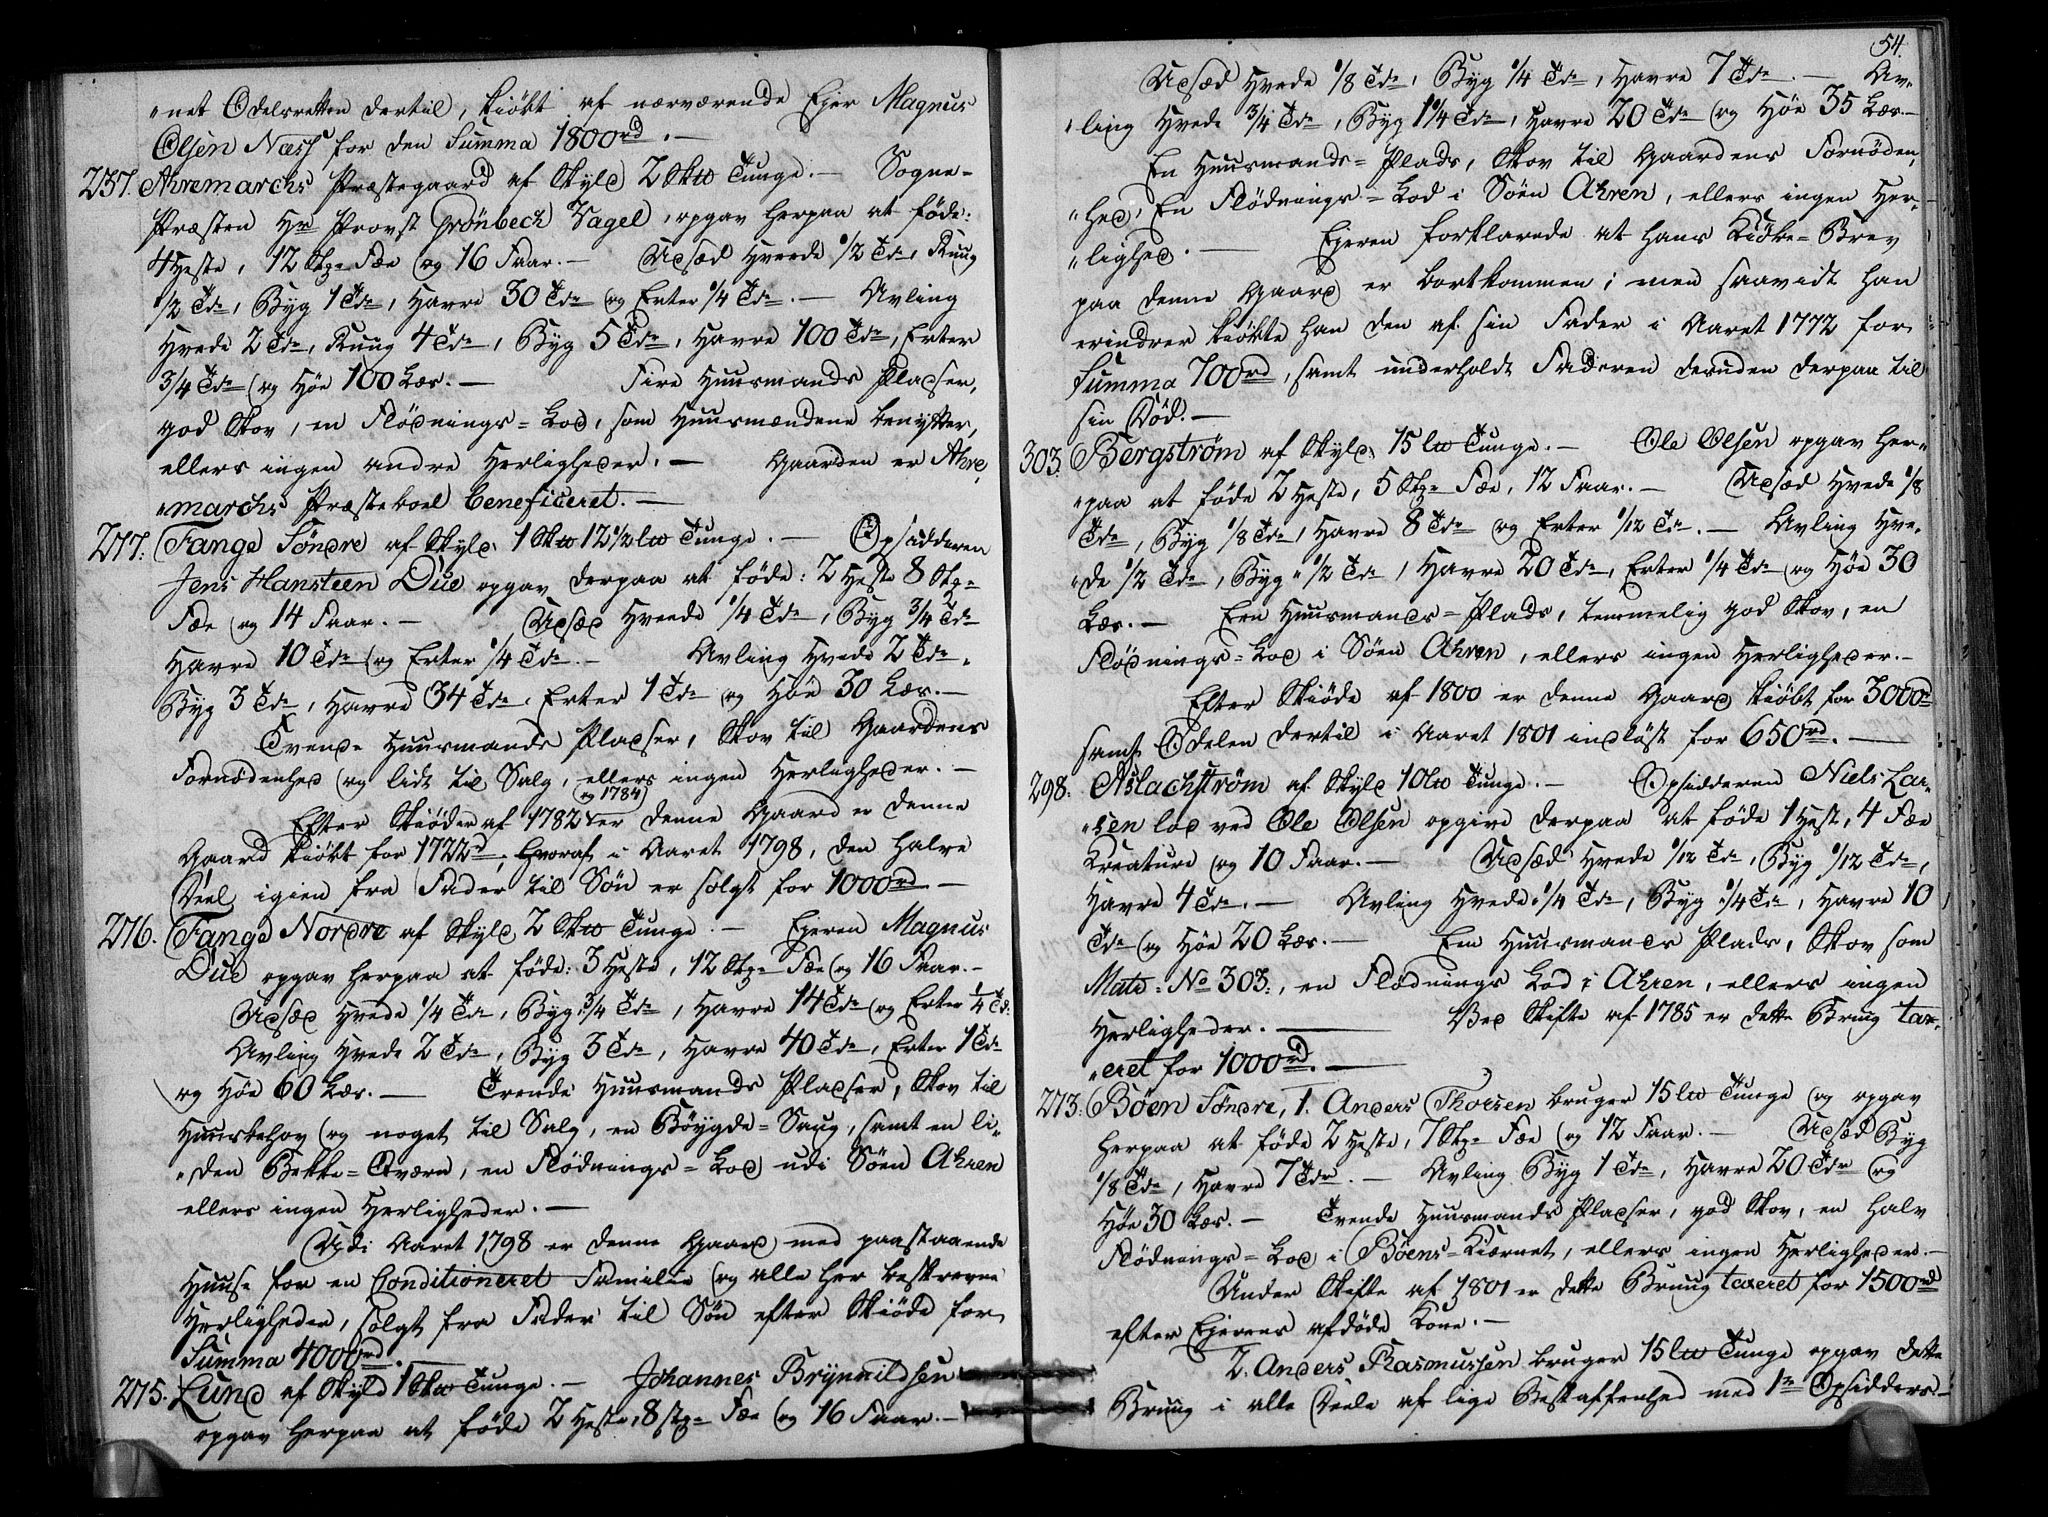 "net Odelsretten dertil, kiöbt af nærværende Ejer Magnus
Olsen Næss for den Summa 1800rd. —
257. Ahremarchs Præstegaard af Skyld 2 Skto Tunge. — Sogne-
Præsten Hr Provst Grönbech Vagel, opgav herpaa at föde:
4 Heste, 12 Stkr Fæe og 16 Faar. — Udsæd Hvede 1/2 Tdr, Rug
1/2 Tdr, Byg 1 Tdr, Havre 30 Tdr og Erter 1/4 Tdr. — Avling
Hvede 2 Tdr, Rug 4 Tdr, Byg 5 Tdr, Havre 100 Tdr, Erter
3/4 Tdr og Höe 100 Læs. — Fire Huusmands Pladser,
god Skov, en Flödnings-Lod, som Huusmændene benytter,
ellers ingen andre Herligheder. — Gaarden er Ahre,
"marchs Præsteboel beneficeret. —
277: Fange Söndre af Skyld 1 Skto 12 1/2 lto Tunge. — Opsidderen
Jens Hansteen Due opgav derpaa at föde: 2 Heste 8 Stkr
Fæe og 14 Faar. — Udsæd Hvede 1/4 Tdr, Byg 3/4 Tdr
Havre 10 Tdr og Erter 1/4 Tdr. — Avling Hvede 2 Tdr,
Byg 3 Tdr, Havre 34 Tdr, Erter 1 Tdr og Höe 30 Læs. —
Tvende Huusmands Pladser, Skov til Gaardens
Fornödenhed og lidt til Salg, ellers ingen Herligheder. —
og 1784
Efter Skiöder af 1782 er denne Gaard er denne
Gaard kiöbt for 1722rd, hvoraf i Aaret 1798, den halve
Deel igien fra Fader til Sön er solgt for 1000rd —
276. Fange Nordre af Skyld 2 Skto Tunge. — Ejeren Magnus
Due opgav herpaa at föde: 3 Heste, 12 Stkr Fæe og 16 Faar. —
Udsæd Hvede 1/4 Tdr, Byg 3/4 Tdr, Havre 14 Tdr og Erter 1/4 Td:
Avling Hvede 2 Tdr, Byg 3 Tdr, Havre 40 Tdr, Erter 1 Tdr
og Höe 60 Læs. — Trende Huusmands Pladser, Skov til
Huusbehov og noget til Salg, en Böygde-Saug, samt en li-
"den Bekke-Qværn, en Flödnings-Lod udi Söen Ahren
ellers ingen Herligheder. —
Udi Aaret 1798 er denne Gaard med paastaaende
Huuse for en Conditioneret Familie og alle her beskrevne
Herligheder, solgt fra Fader til Sön efter Skiöde for
Summa 4000rd.
275. Lund af Skyld 1 Skto Tunge. — Johannes Brynnildsen
opgav herpaa at föde 2 Heste, 8 stkr Fæe og 16 Faar. —
54.
Udsæd Hvede 1/8 Tdr, Byg 1/4 Tdr, Havre 7 Tdr. — Av-
"ling Hvede 3/4 Tdr, Byg 1 1/4 Tdr, Havre 20 Tdr og Höe 35 Læs —
En Huusmands-Plads, Skov til Gaardens Fornöden,
"hed, En Flödnings-Lod i Söen Ahren, ellers ingen Her-
"lighed. — Ejeren forklarede at hans Kiöbe-Brev
paa denne Gaard er bortkommen; men saavidt han
erindrer kiöbte han den af sin Fader i Aaret 1772 for
Summa 700rd, samt underholdt Faderen desuden derpaa til
sin Död. —
303. Bergström af Skyld 15 lto Tunge. — Ole Olsen opgav her-
"paa at föde 2 Heste, 5 Stkr Fæe, 12 Faar. — Udsæd Hvede 1/8
Tdr, Byg 1/8 Tdr, Havre 8 Tdr og Erter 1/12 Tdr. — Avling Hve-
"de 1/2 Tdr, Byg 1/2 Tdr, Havre 20 Tdr, Erter 1/4 Tdr og Höe 30
Læs. — Een Huusmands-Plads, temmelig god Skov, en
Flödnings-Lod i Söen Ahren, ellers ingen Herligheder. —
Efter Skiöde af 1800 er denne Gaard kiöbt for 3000rd
samt Odelen dertil i Aaret 1801 indlöst for 650rd. —
298. Aslachström af Skyld 10 lto Tunge. — Opsidderen Niels Lar-
"sen lod ved Ole Olsen opgive derpaa at föde 1 Hest, 4 Fæe
Kreature og 10 Faar. — Udsæd Hvede 1/12 Tdr, Byg 1/12 Tdr,
Havre 4 Tdr. — Avling Hvede 1/4 Tdr, Byg 1/4 Tdr, Havre 10
Tdr og Höe 20 Læs. — Een Huusmands Plads, Skov som
Matr: No 303:, en Flödnings Lod i Ahren, ellers ingen
Herligheder. — Ved Skifte af 1785 er dette Brug tax-
"eret for 1000rd. —
273. Böen Söndre, 1. Anders Thorsen bruger 15 lto Tunge og opgav
herpaa at föde 2 Heste, 7 Stkr Fæe og 12 Faar. — Udsæd Byg
1/8 Tdr, Havre 7 Tdr. — Avling Byg 1 Tdr, Havre 20 Tdr og
Höe 30 Læs. — Tvende Huusmands Pladser, god Skov, en halv
Flödnings-Lod i Böens-Kiernet, ellers ingen Herligheder. —
Under Skifte af 1801 er dette Brug taxeret for 1500rd
efter Ejerens afdöde Kone. —
2. Anders Rasmussen bruger 15 lto Tunge opgav dette
Brug i alle Deele af lige Beskaffenhed med 1ste Opsidders —